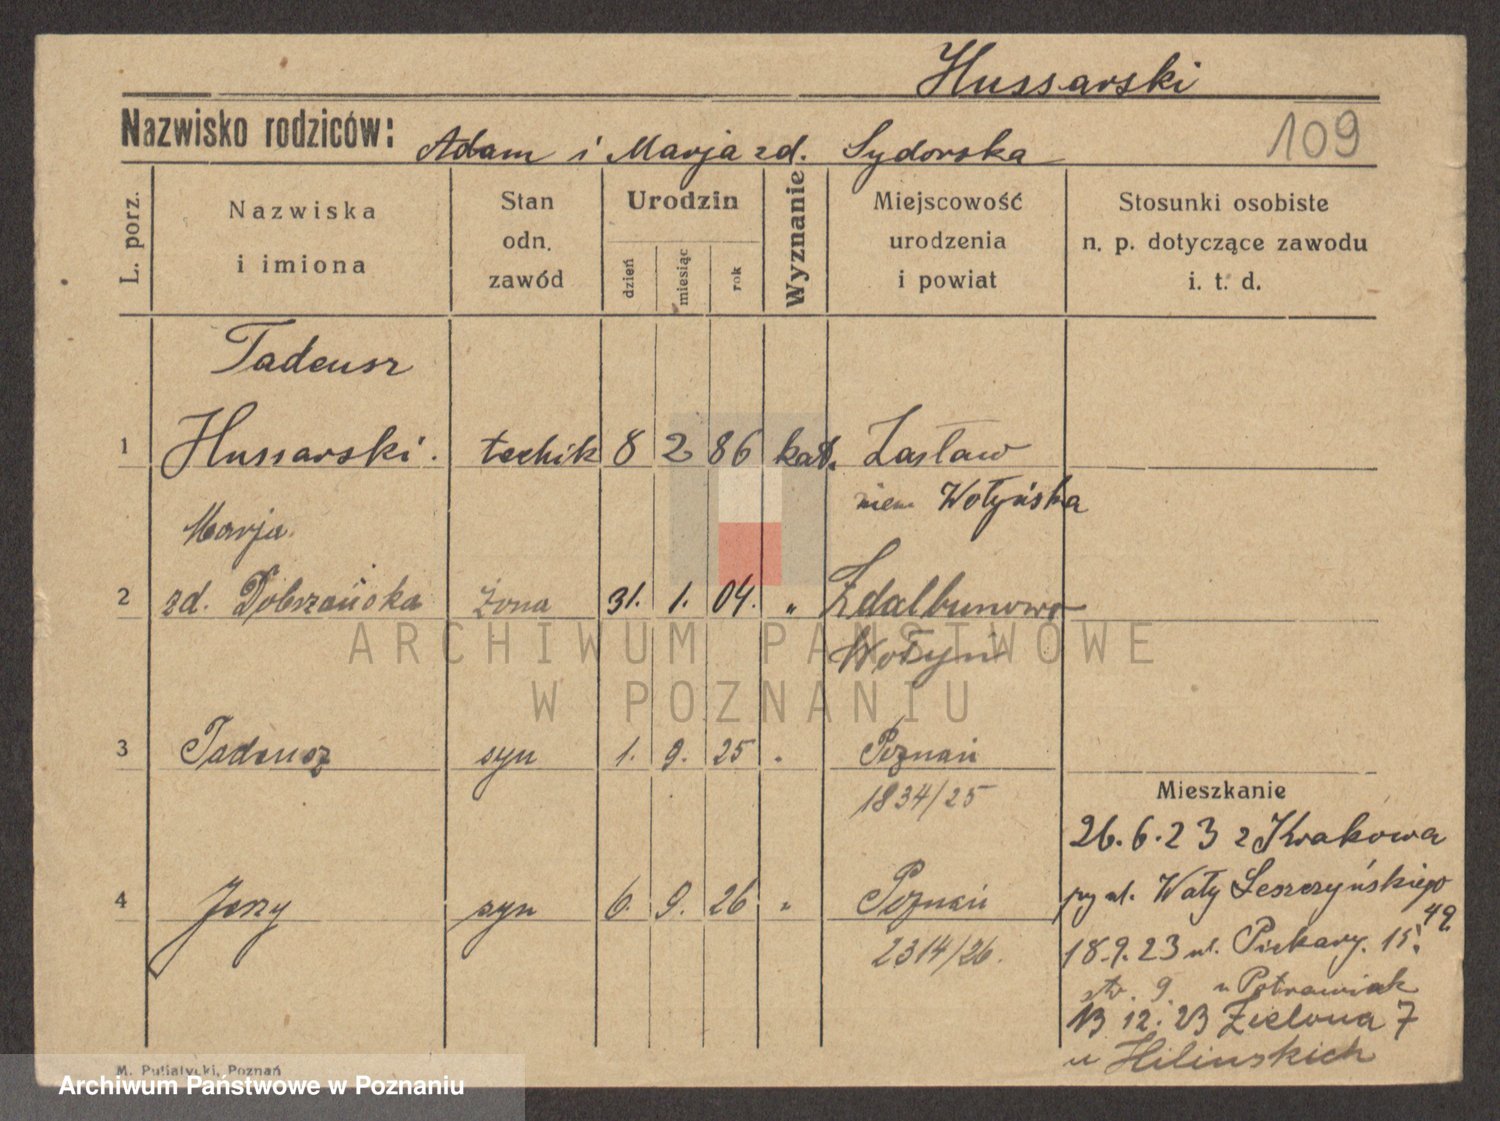 Hussarski
Nazwisko rodziców: Adam i Marja zd. Sydorska
109
L. porz.
Nazwiska
i imiona
Stan
odn.
zawód
Urodzin
dzień
miesiąc
rok
Wyznanie
Miejscowość
urodzenia
i powiat
Stosunki osobiste
n. p. dotyczące zawodu
i. t. d.
Tadeusz
1 Hussarski. techik 8 2 86 kat. Zasław
Wołyńska
Marja
2 zd. Dobszańska żona 31. 1. 04. " Zdalbunowo
Wołyń
3 Tadeusz syn 1. 9. 25 " Poznań
1834/25
4 Jerzy syn 6. 9. 26 " Poznań
2314/26.
Mieszkanie
26.6.23 z Krakowa
ul. Wały Leszczyńskiego
49
18.9.23 ul. Piekary. 15.
9. u Potrawiak
13 12. 23 Zielona 7
u Hilinskich
ARCHIWUM PAŃSTWOWE
W POZNANIU
M. Putiatycki, Poznań
Archiwum Państwowe w Poznaniu